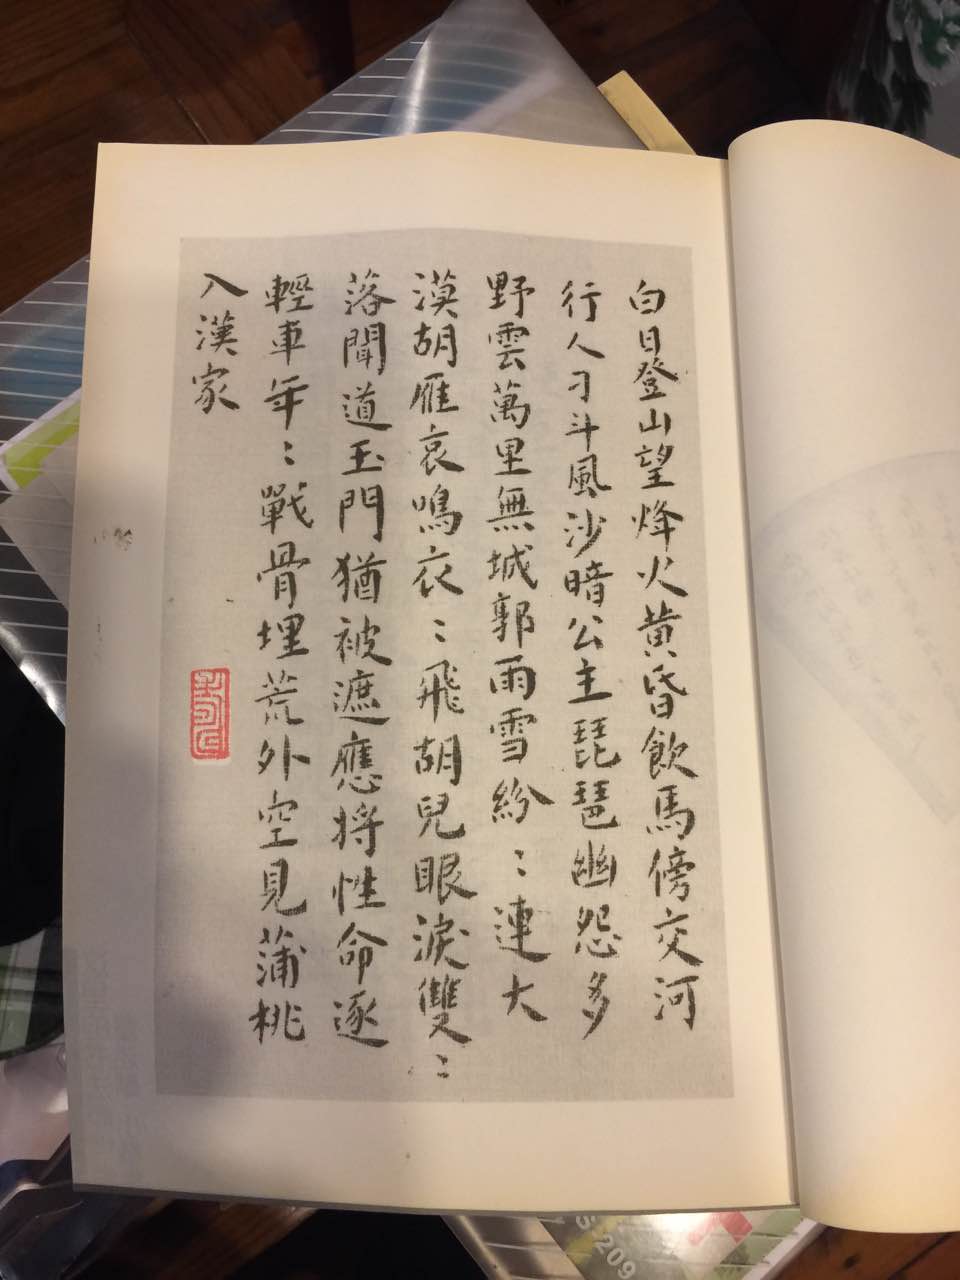 白日登山望烽火黄昏飲馬傍交河
行人刁斗風沙暗公主琵琶幽怨多
野雲萬里無城郭雨雪紛〻連大
漠胡雁哀鳴衣〻飛胡兒眼淚雙〻
落聞道玉門猶被遮應将性命逐
輕車年〻戰骨埋荒外空見蒲桃
入漢家
209